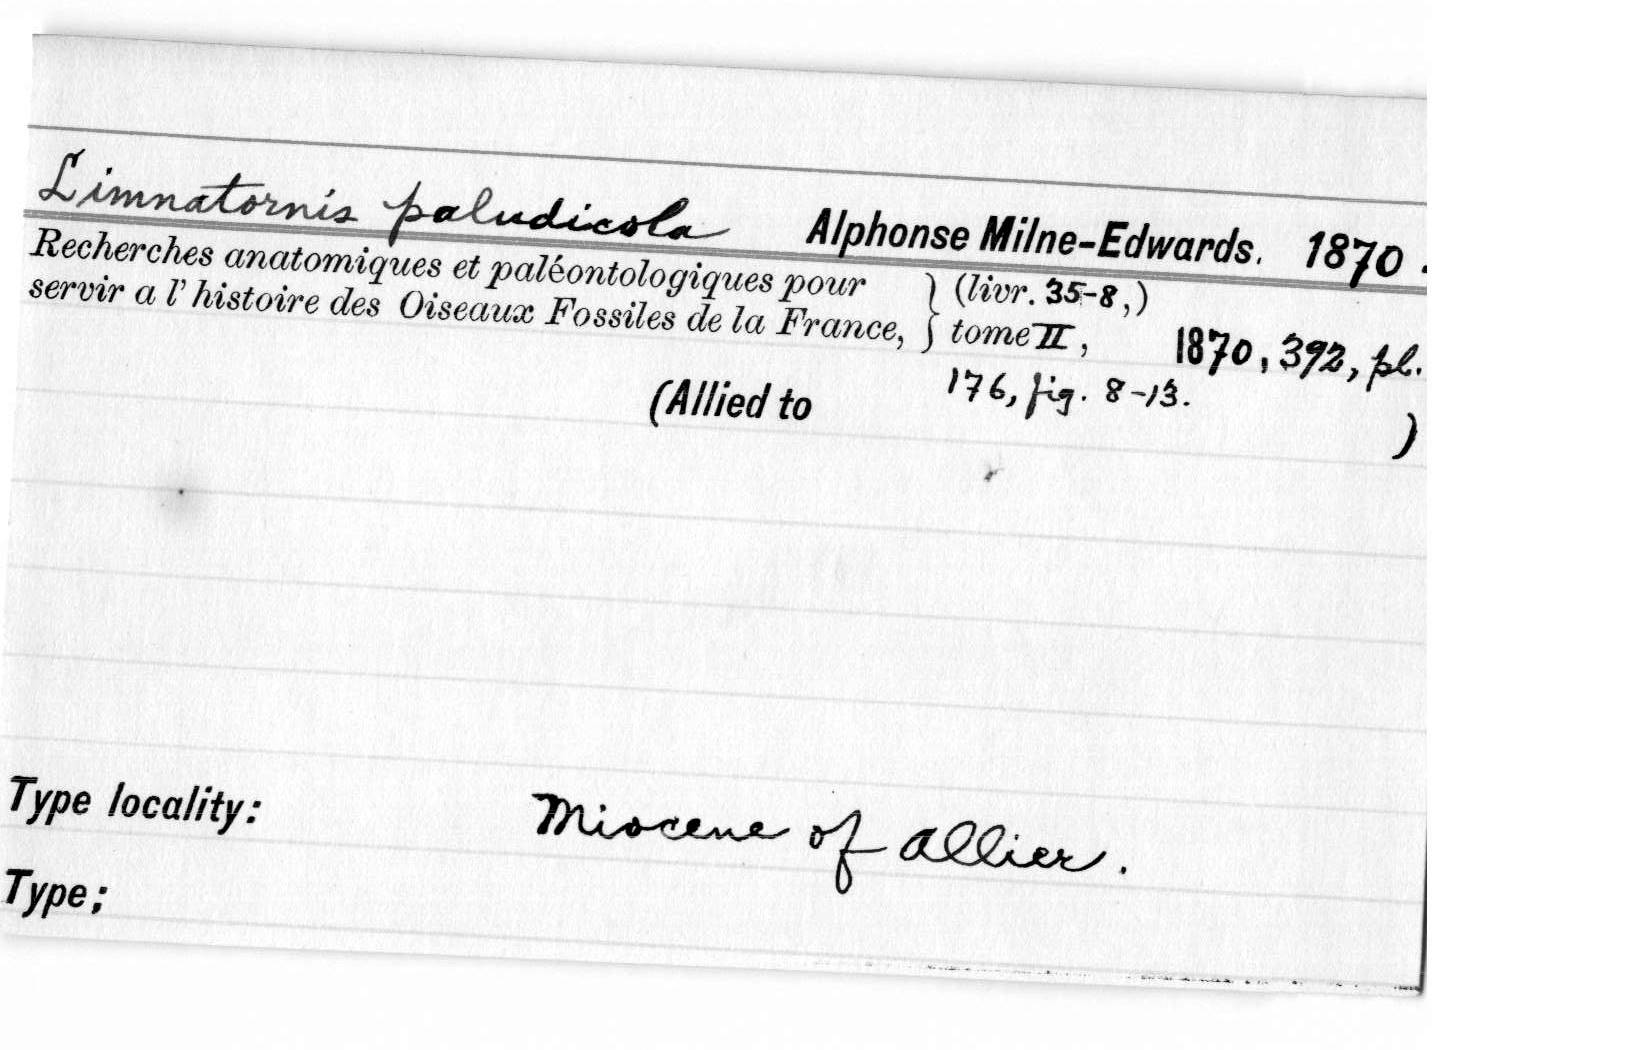 Limnatornis paludicola Alphonse Milne-Edwards. 1870.
Recherches anatomiques et paléontologiques pour } (livr. 35-8,)
servir a l'histoire des Oiseaux Fossiles de la France, } tome II, 1870, 392, pl.
176, fig. 8-13.
(Allied to )
Type locality: Miocene of Allier.
Type;